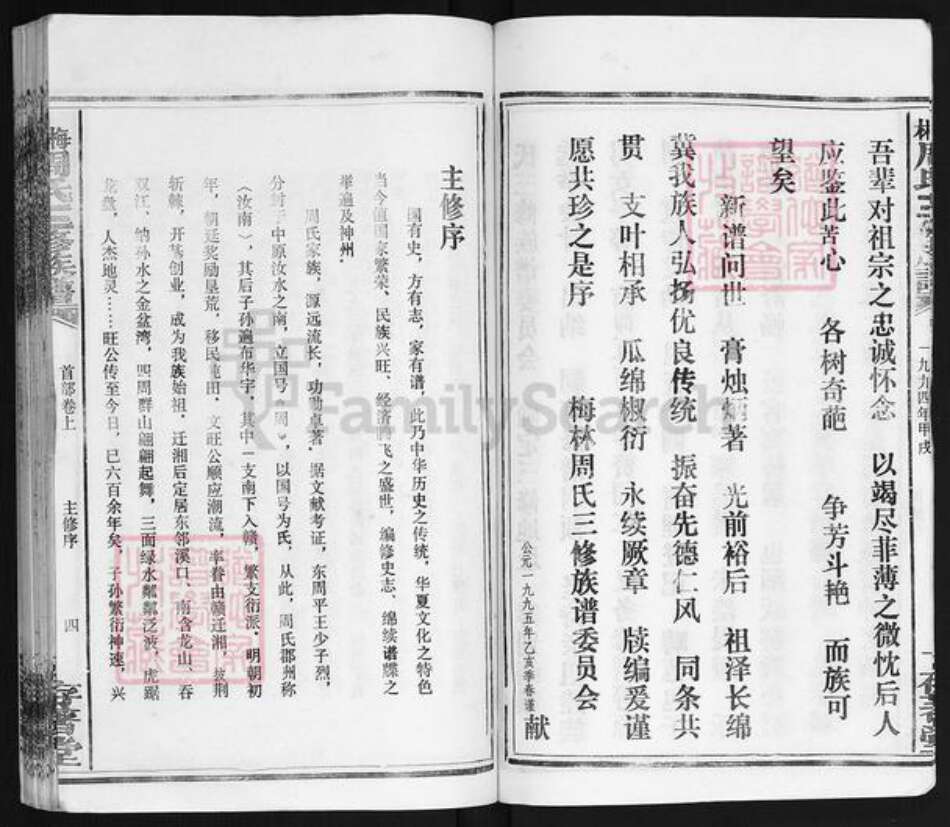 一九九四年甲戌
吾辈对祖宗之忠诚怀念 以竭尽菲薄之微忱后人
应鉴此苦心 各树奇葩 争芳斗艳 而族可
望矣
新谱问世 膏烛炳著 光前裕后 祖泽长绵
冀我族人弘扬优良传统 振奋先德仁风 同条共
贯 支叶相承 瓜绵椒衍 永续厥章 牍编爰谨
愿共珍之是序 梅林周氏三修族谱委员会
公元一九九五年乙亥季春谨 献
主修序
国有史,方有志,家有谱,此乃中华历史之传统,华夏文化之特色
当今值国家繁荣、民族兴旺、经济腾飞之盛世,编修史志、绵续谱牒之
举遍及神州.
周氏家族,源远流长,功勋卓著.据文献考证,东周平王少子烈,
分封于中原汝水之南,立国号"周",以国号为氏,从此,周氏郡州称
(汝南),其后子孙遍布华宇,其中一支南下入赣,繁文衍派.明朝初
年,朝廷奖励垦荒,移民屯田.文旺公顺应潮流,率眷由赣迁湘,披荆
斩棘,开基创业,成为我族始祖.迁湘后定居东邻溪口、南含龙山、吞
双江、纳孙水之金盆湾,四周群山翩翩起舞,三面绿水粼粼泛波,虎踞
龙盘,人杰地灵……旺公传至今日,已六百余年矣,子孙繁衍神速,兴
梅周氏三修族谱
首部卷上
主修序
四
存著堂
FamilySearch